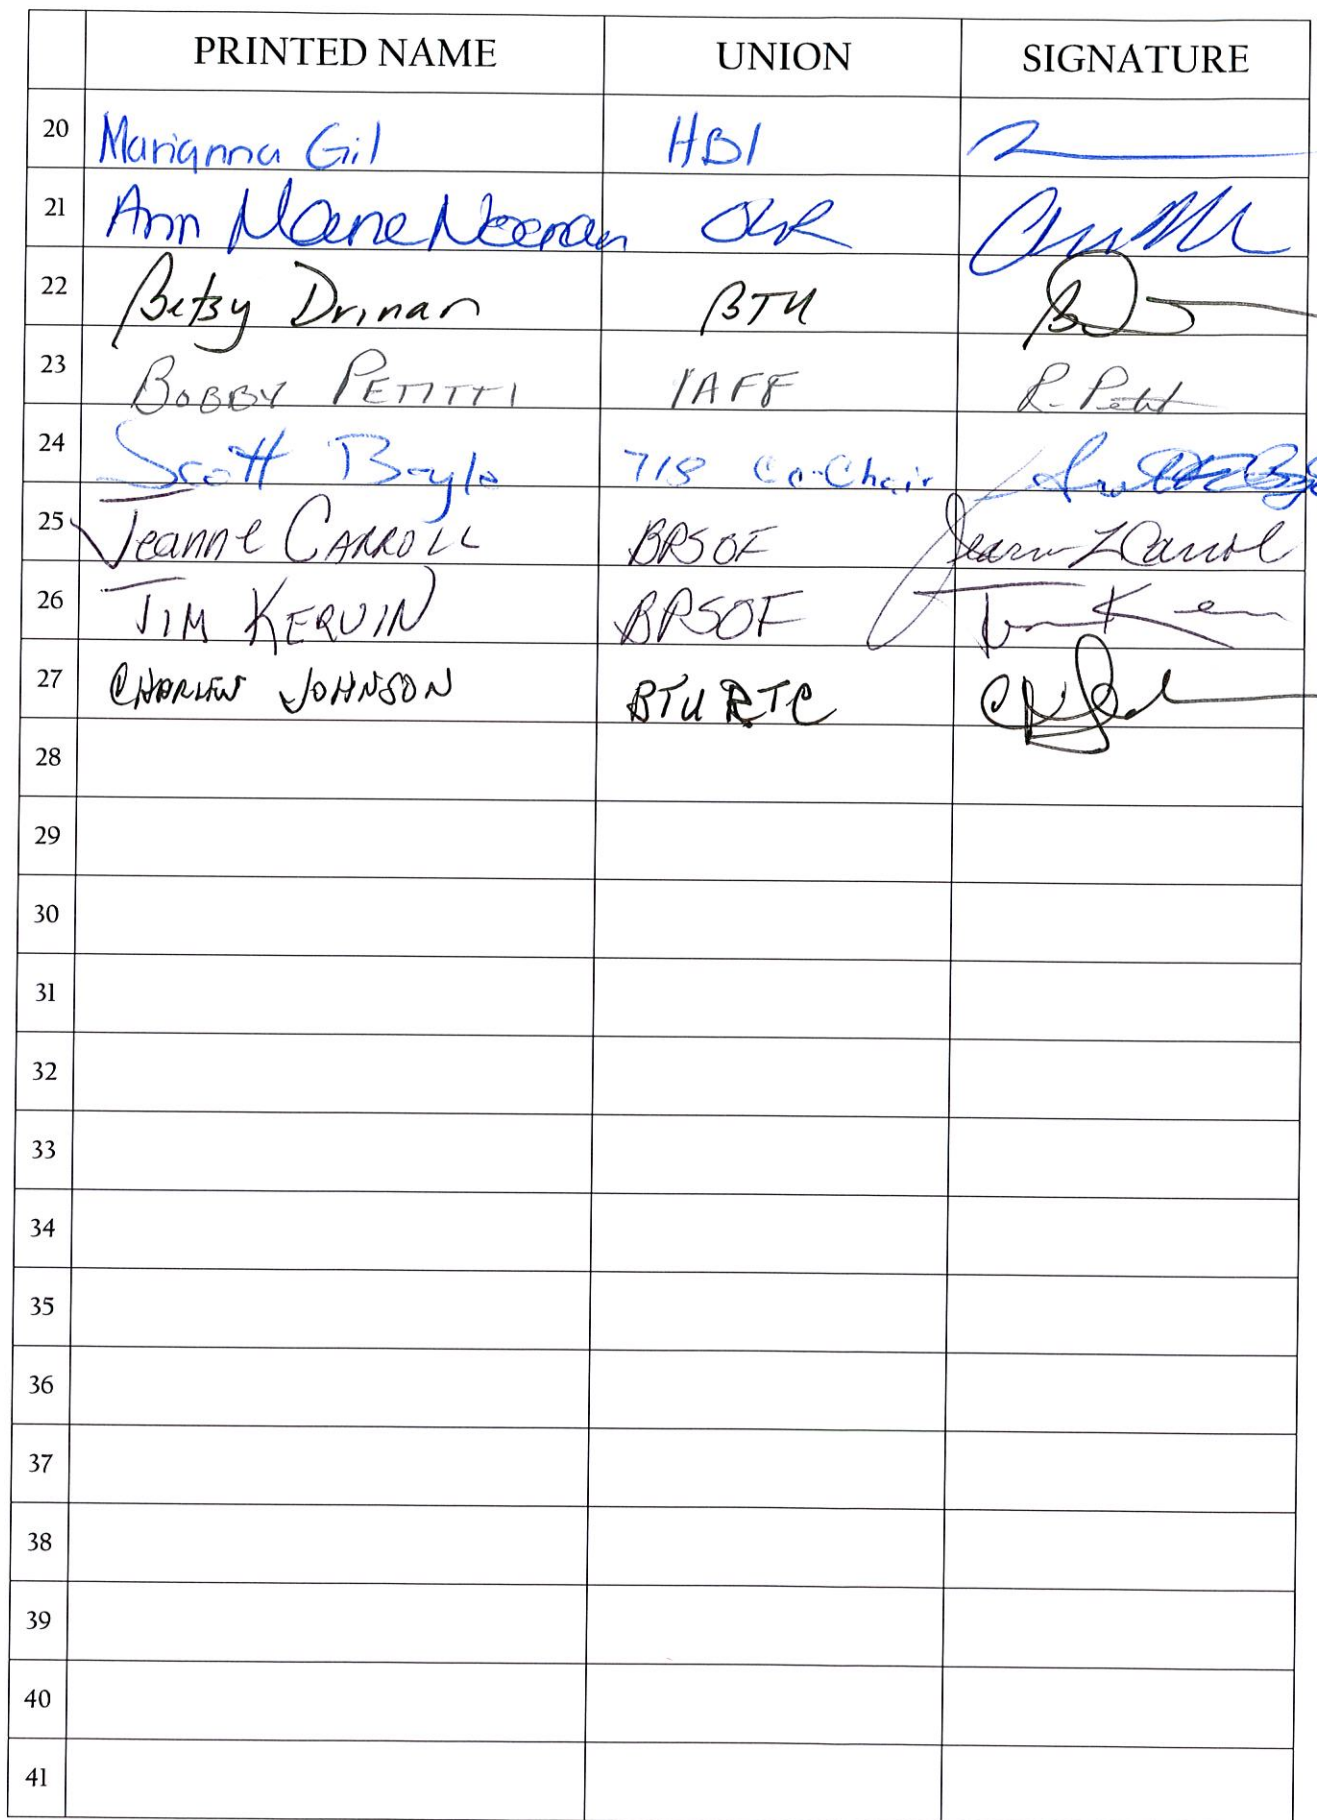 PRINTED NAME UNION SIGNATURE
20 Marianna Gil HBI
21 Ann Marie Noonan OLR
22 Betsy Drinan BTU
23 BOBBY PETITTI IAFF R. Petit
24 Scott Boyle 718 Co-Chair
25 Jeanne CARROLL BPSOF Jeanne L Carroll
26 TIM KERVIN BPSOF
27 JOHNSON BTU RTC
28
29
30
31
32
33
34
35
36
37
38
39
40
41